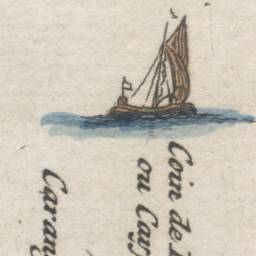 Coin de
ou Cas
Caran